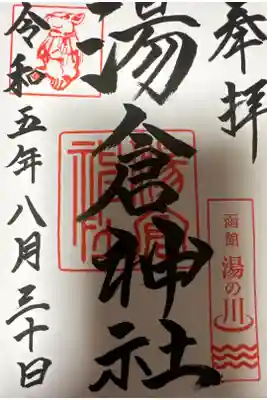 奉拝
湯倉神社
令和五年八月三十日
湯倉神社
函館
湯の川